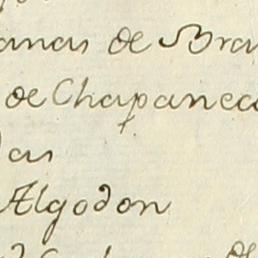 anas de Bra
de Chapaneca
das
Algodon